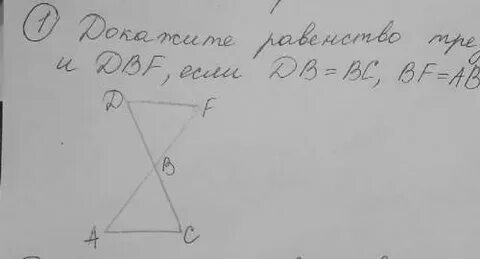 ① Докажите равенство тре
и DBF, если DB = BC, BF = AB
D
F
B
A
C